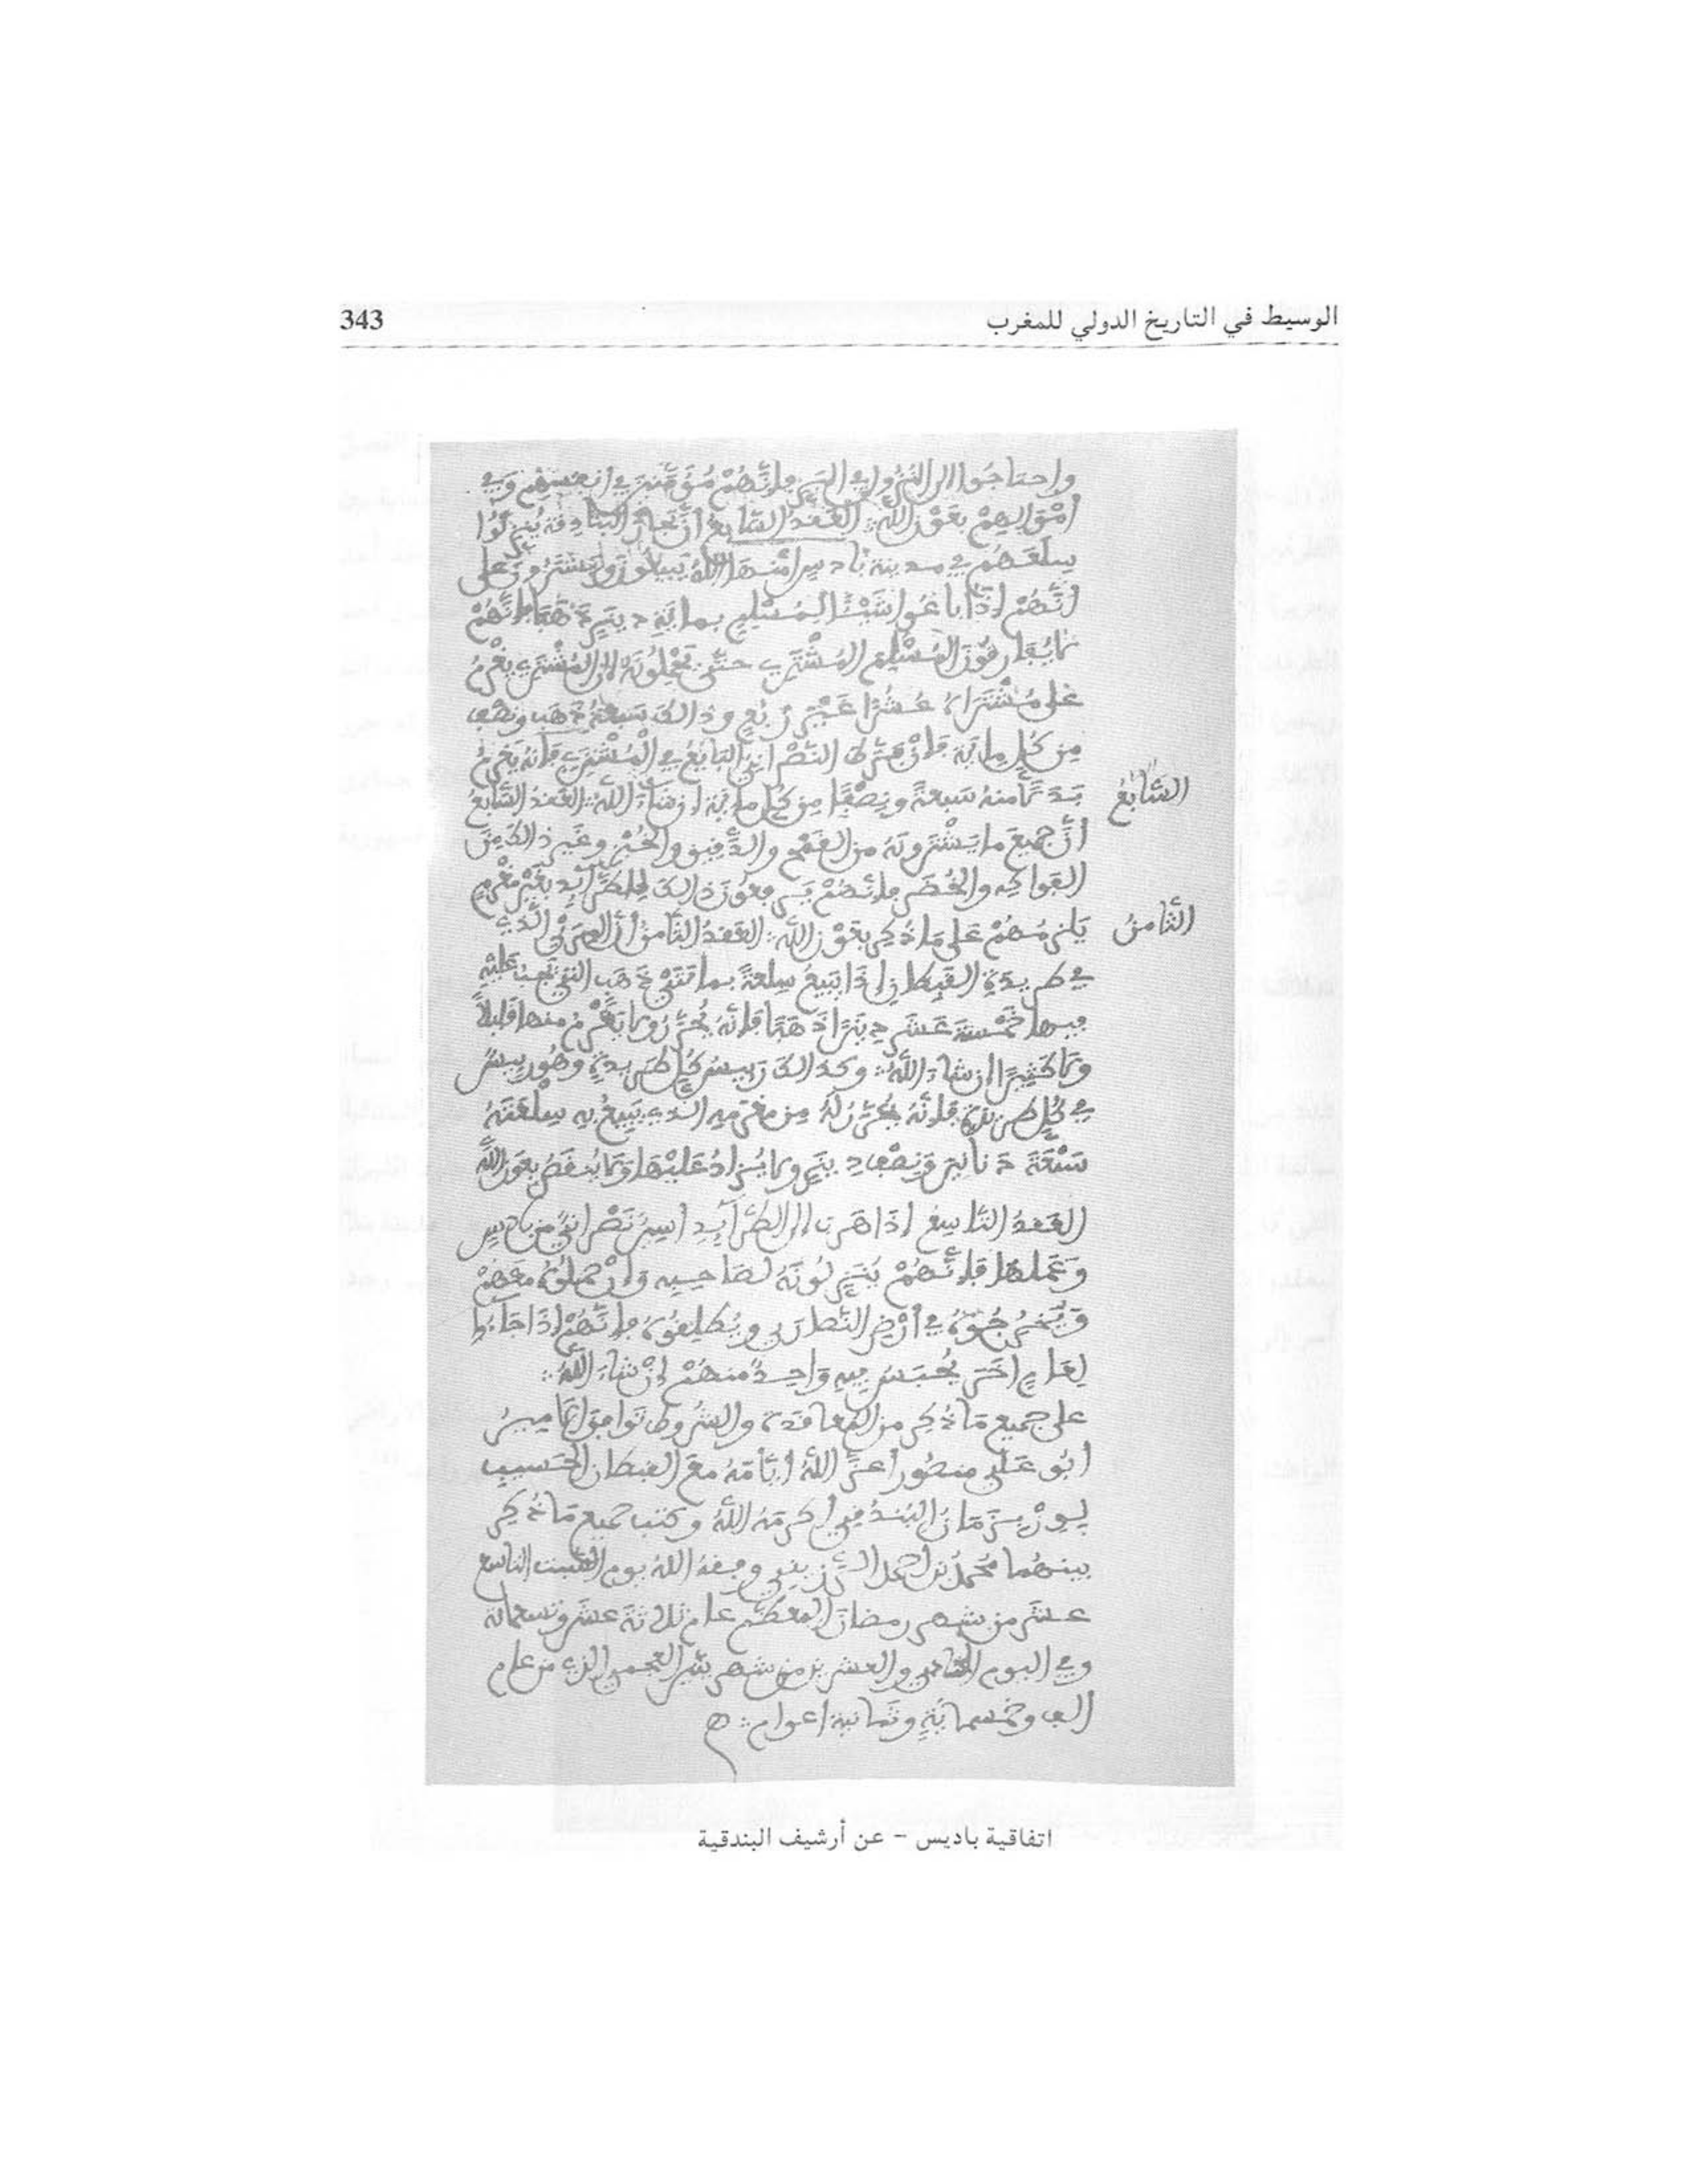 الوسيط في التاريخ الدولي للمغرب
343
واحتاجوا الى النزول في البر فإنهم مؤمنين في أنفسهم وفي
أموالهم بعون الله العقد السابع أن تجار البنادقة ينزلوا
سلعهم في مدينة باديس امنها الله يبيعون ويشترون على
أنهم إذا باعوا شيئا لمسلم بماية دينير ذهبا فإنهم
لا يفارقون المسلم المشتري حتى لان المشتري يغرم
على مشتراه عشرا غير ربع وذالك سبعة ذهب ونصف
من كل ماية فإن فرط النصراني البايع في المشتري فإنه يغرم
سبعة ونصفا من كل ماية ان شاء الله العقد السابع
السابع
أن جميع ما يشترونه من القمح والدقيق والخبز وغير ذالك من
الفواكه والخضر فإنهم يرفعون ذالك للطرايد بغير مغرم
يلزمهم على ما ذكر بعون الله العقد الثامن أن الذي
الثامن
في طريدة القبطان إذا يبيع سلعة بمايتي ذهب التي يجب عليه
فيها خمسة عشر دينرا ذهبا فإنه يحرر ولا يغرم منها قليلا
ولا كثيرا إن شاء الله وكذالك رييس كل طريدة وهو رييس
في كل طريدة فإنه يحرر له من مغرمه الذي يبيع به سلعته
سبعة دنانير ونصف دينير ولا يزاد عليها ولا ينقص بعون الله
العقد التاسع إذا هرب الى الطرايد اسير نصراني من باديس
وعملها فإنهم ينزلونه لصاحبه وإن حملوه معهم
ويخرجوه في أرض النصارى ويطلقوه فإنهم إذا جاءوا
لعام اخر يحبس فيه واحد منهم إن شاء الله
على جميع ما ذكر من المعاقدة والشروط توافقوا لامير
أبو علي منصور أعز الله أيامه مع القبطان الحسيب
البندقي اكرمه الله وكتب جميع ما ذكر
بينهما محمد بن احمد وفقه الله يوم السبت التاسع
عشر من شهر رمضان المعظم عام ثلاثة عشر وتسعمائة
وفي اليوم والعشرين من شهر ينير العجمي الذي من عام
الف وخمسماية وثمانية اعوام
اتفاقية باديس - عن أرشيف البندقية